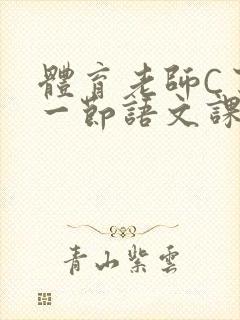 體育老師C
一節語文課
青山紫雲